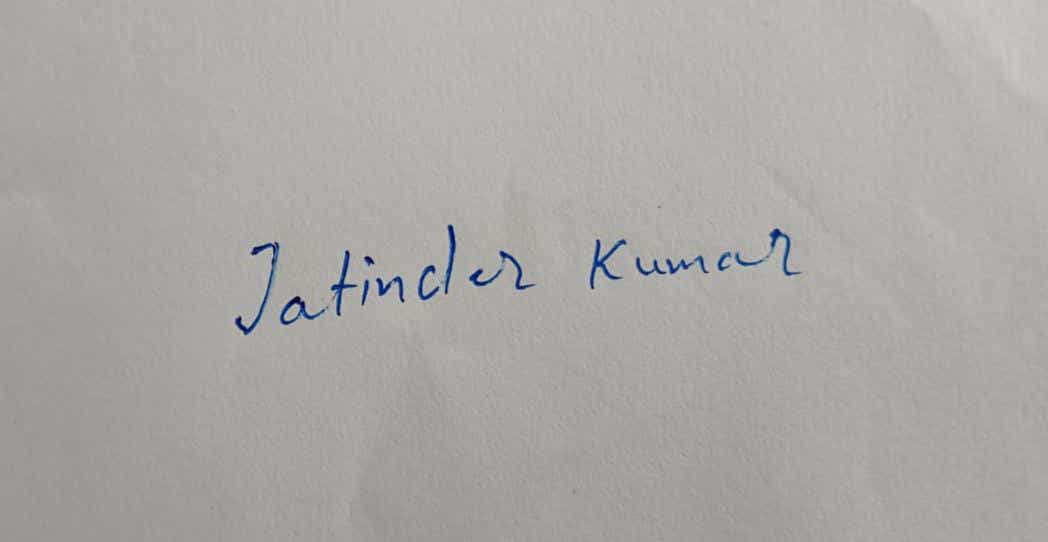 Jatinder Kumar